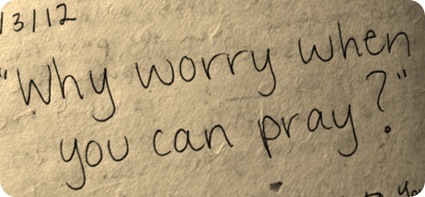 /3/12
"Why worry when
you can pray?"